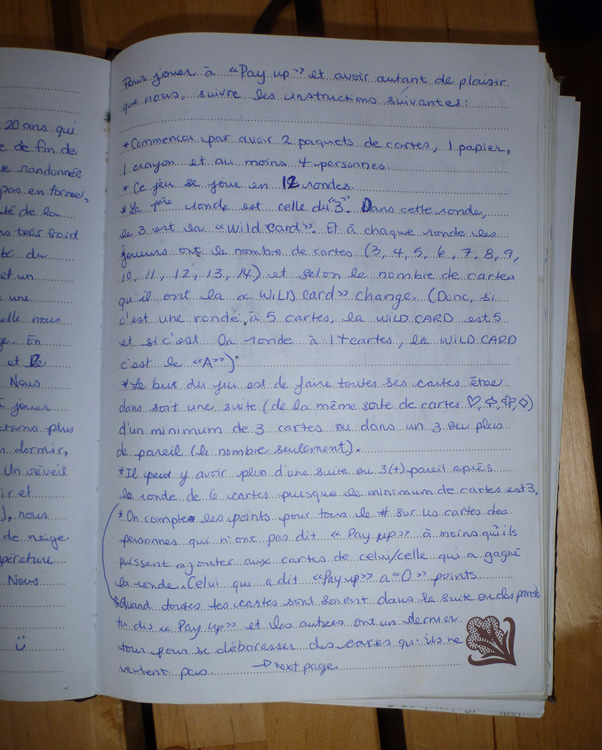 20 ans qui
e de fin de
randonnée
pas en forme,
té de la
s très froid
te du
et un
une
elle nous
ge. En
et
Nous
à jouer
ctions plus
dormir,
Un réveil
ir et
), nous
de neige.
pérature
Nous
Pour jouer à «Pay up» et avoir autant de plaisir
que nous, suivre les instructions suivantes:
* Commencer par avoir 2 paquets de cartes, 1 papier,
1 crayon et au moins 4 personnes.
* Ce jeu se joue en 12 rondes.
* La 1ère ronde est celle du "3". Dans cette ronde,
le 3 est la «Wild card». Et à chaque ronde les
joueurs ont le nombre de cartes (3, 4, 5, 6, 7, 8, 9,
10, 11, 12, 13, 14) et selon le nombre de cartes
qu'il ont la «WILD card» change. (Donc, si
c'est une ronde, à 5 cartes, la WILD CARD est 5
et si c'est la ronde à 14 cartes, la WILD CARD
c'est le «A»)*
* Le but du jeu est de faire toutes ses cartes être
dans soit une suite (de la même sorte de cartes ♡, ♤, ♧, ◇)
d'un minimum de 3 cartes ou dans un 3 ou plus
de pareil (le nombre seulement).
* Il peut y avoir plus d'une suite ou 3(+) pareil après
la ronde de 6 cartes puisque le minimum de cartes est 3.
* On compte les points pour tous le # sur les cartes des
personnes qui n'ont pas dit «Pay up» à moins qu'ils
puissent ajouter aux cartes de celui/celle qui a gagné
la ronde. Celui qui a dit «Pay up» a "0" points
* Quand toutes tes cartes sont soient dans la suite ou des pareils
tu dis «Pay up» et les autres ont un dernier
tour pour se débarasser des cartes qu'ils ne
veulent pas. → next page.